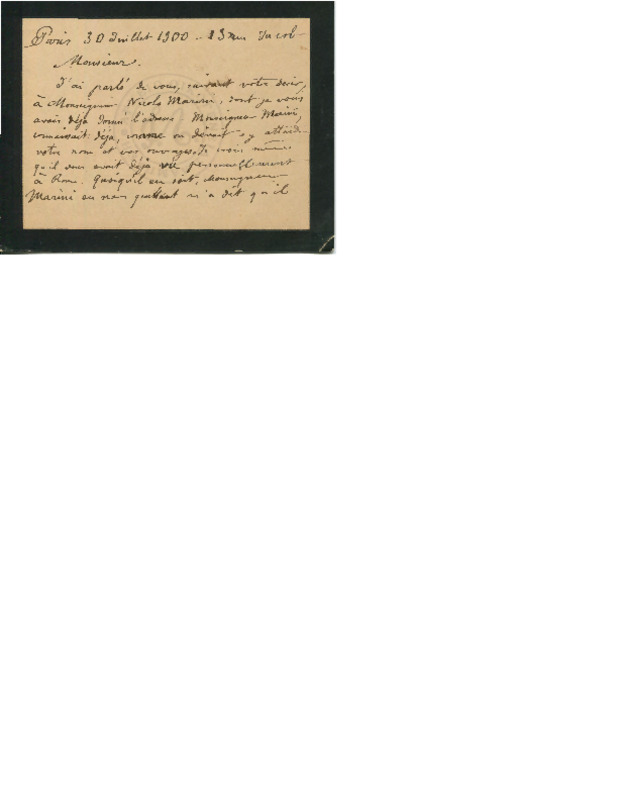 Paris 30 Juillet 1900 - 13 rue Jacob -
Monsieur.
J'ai parlé de vous, suivant votre désir,
à Monseigneur Nicolo Marini, dont je vous
avais déjà donné l'adresse. Monseigneur Marini,
connaissait déjà, comme on devait s'y attendre
votre nom et vos ouvrages. Je crois même
qu'il vous avait déjà vu personnellement
à Rome. Quoiqu'il en soit, Monseigneur
Marini en nous quittant m'a dit qu'il